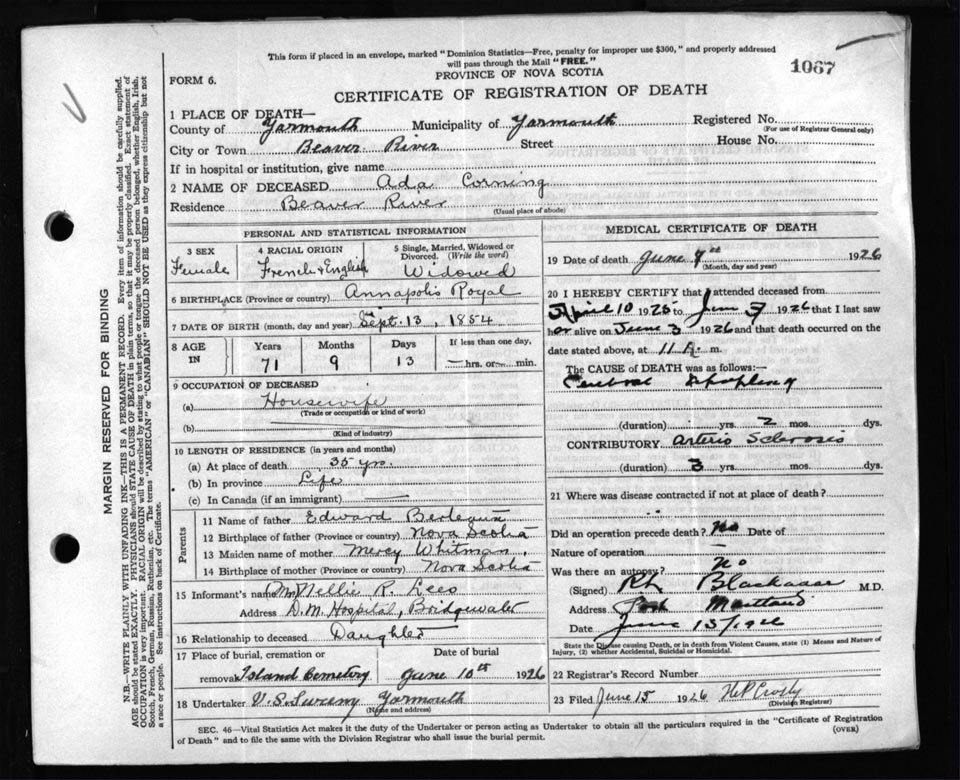 This form if placed in an envelope, marked "Dominion Statistics—Free, penalty for improper use $300," and properly addressed
will pass through the Mail "FREE."
1067
FORM 6.
PROVINCE OF NOVA SCOTIA
CERTIFICATE OF REGISTRATION OF DEATH
1 PLACE OF DEATH—
County of Yarmouth Municipality of Yarmouth Registered No.
(For use of Registrar General only)
City or Town Beaver River Street House No.
If in hospital or institution, give name
2 NAME OF DECEASED Ada Corning
Residence Beaver River
(Usual place of abode)
PERSONAL AND STATISTICAL INFORMATION
3 SEX 4 RACIAL ORIGIN 5 Single, Married, Widowed or Divorced. (Write the word)
Female French & English Widowed
6 BIRTHPLACE (Province or country) Annapolis Royal
7 DATE OF BIRTH (month, day and year) Sept. 13, 1854
8 AGE IN Years Months Days If less than one day,
71 9 13 hrs. or min.
9 OCCUPATION OF DECEASED
(a) Housewife
(Trade or occupation or kind of work)
(b)
(Kind of industry)
10 LENGTH OF RESIDENCE (in years and months)
(a) At place of death 35 yrs.
(b) In province Life
(c) In Canada (if an immigrant)
Parents
11 Name of father Edward
12 Birthplace of father (Province or country) Nova Scotia
13 Maiden name of mother Mercy Whitman
14 Birthplace of mother (Province or country) Nova Scotia
15 Informant's name Nellie R. Lees
Address D.M. Hospital, Bridgewater
16 Relationship to deceased Daughter
17 Place of burial, cremation or removal Date of burial
Island Cemetery June 10th 1926
18 Undertaker V.S. Sweeny Yarmouth
(Name and address)
MEDICAL CERTIFICATE OF DEATH
19 Date of death June 1926
(Month, day and year)
20 I HEREBY CERTIFY that I attended deceased from
April 10 1925 to June 1926 that I last saw
her alive on June 3 1926 and that death occurred on the
date stated above, at 11 m.
The CAUSE OF DEATH was as follows:—
Cerebral
(duration) yrs. 2 mos. dys.
CONTRIBUTORY Arterio Sclerosis
(duration) 3 yrs. mos. dys.
21 Where was disease contracted if not at place of death?
Did an operation precede death? No Date of
Nature of operation
Was there an autopsy? no
(Signed) Blackadar M.D.
Address Port Maitland
Date June 15/1926
State the Disease causing Death, or in death from Violent Causes, state (1) Means and Nature of
Injury, (2) whether Accidental, Suicidal or Homicidal.
22 Registrar's Record Number
23 Filed June 15 1926 H.P. Crosby
(Division Registrar)
SEC. 46—Vital Statistics Act makes it the duty of the Undertaker or person acting as Undertaker to obtain all the particulars required in the "Certificate of Registration
of Death" and to file the same with the Division Registrar who shall issue the burial permit.
(OVER)
MARGIN RESERVED FOR BINDING
N.B.—WRITE PLAINLY WITH UNFADING INK—THIS IS A PERMANENT RECORD. Every item of information should be carefully supplied.
AGE should be stated EXACTLY. PHYSICIANS should STATE CAUSE OF DEATH in plain terms, so that it may be properly classified. Exact statement of
OCCUPATION is very important. RACIAL ORIGIN will be described by stating to what people or tongue the deceased person belonged, whether English, Irish,
Scotch, French, German, Russian, Ruthenian, etc. The terms "AMERICAN" or "CANADIAN" SHOULD NOT BE USED as they express citizenship but not
a race or people. See instructions on back of Certificate.